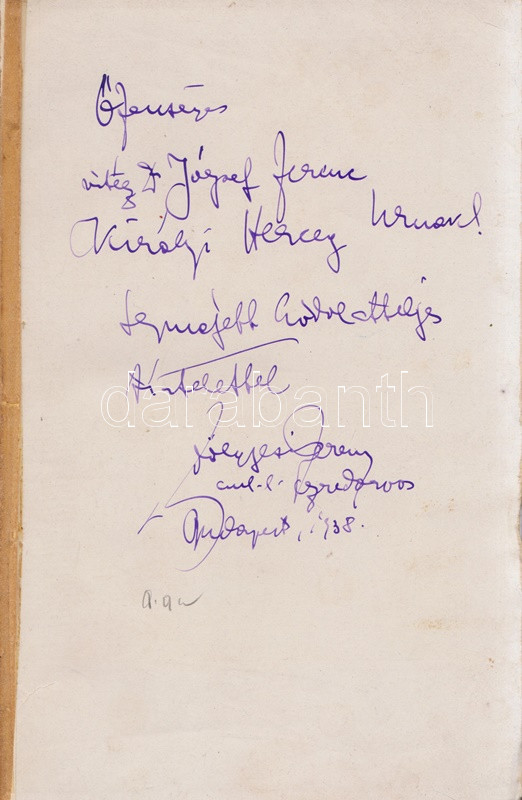 Őfensége
vitéz Dr József Ferenc
Királyi Herceg Urnak!
legmélyebb hódolatteljes
tisztelettel
Ferenc
ezredorvos
Budapest, 1938.
darabanth